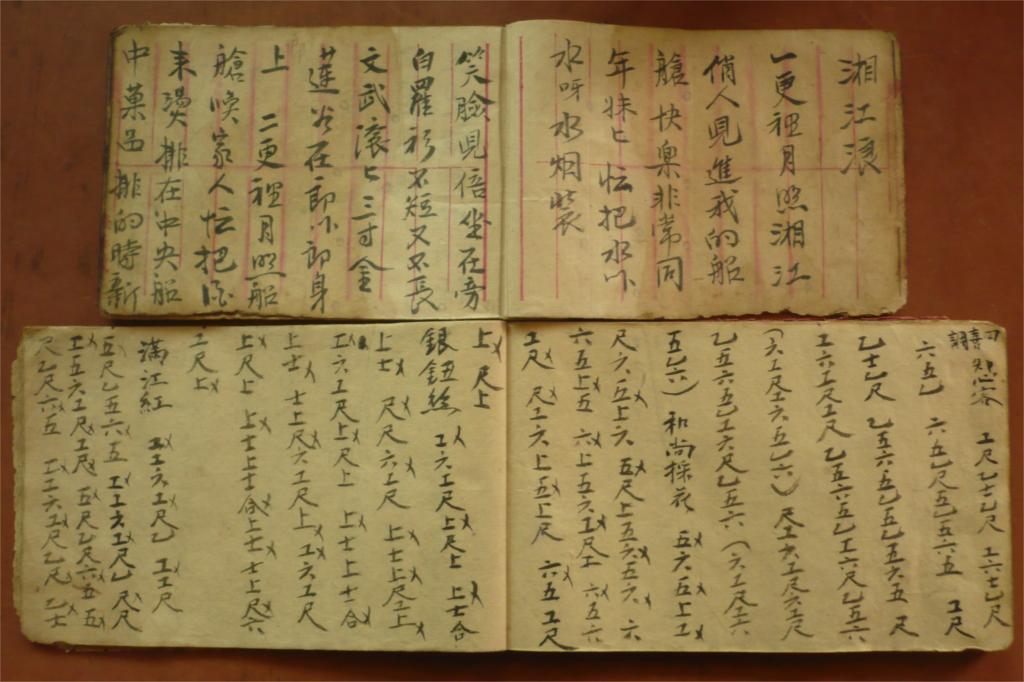 湘江浪
一更裡月照湘江
俏人見進我的船
艙快樂非常同
年妹匕忙把水卟
水呀水烟裝
笑臉見倍坐在旁
白羅衫不短又不長
文武滾匕三寸金
蓮谷在郎卟郎身
上 二更裡月照船
艙喚家人忙把酒
来燙排在中央船
中菓品排的時新
工尺乙士乙尺 工六士乙尺
六五乙 六五乙尺五乙五六五 工尺
乙士乙尺 乙五六五乙五乙五六五 尺
工六工尺工尺 乙五六五乙工六尺乙五六
(六工尺士六五乙六) 尺士六工尺六工尺
乙五六五乙工六尺乙五六 (六工尺士六
五乙六) 和尚採花 五六五上工
尺六五上六 五尺上五六五六 六
六五上五 六上五六工尺上 六五六
工尺 尺工六上五上尺 六五工尺
上 尺上
銀鈕絲 工六工尺上尺上 上士合
上士 尺尺六工尺 上士上尺工上
工六工尺上尺上 上士上士合
上士 士上尺六工尺上 工六工尺
上尺上 上士上士合上士士上尺六
工尺上
滿江紅 工工六工尺乙 工工尺
五尺乙五六五 工工六工尺乙尺尺
工五六工尺工尺 五尺乙尺六五五
尺乙尺六五 工工六工尺乙尺 乙士